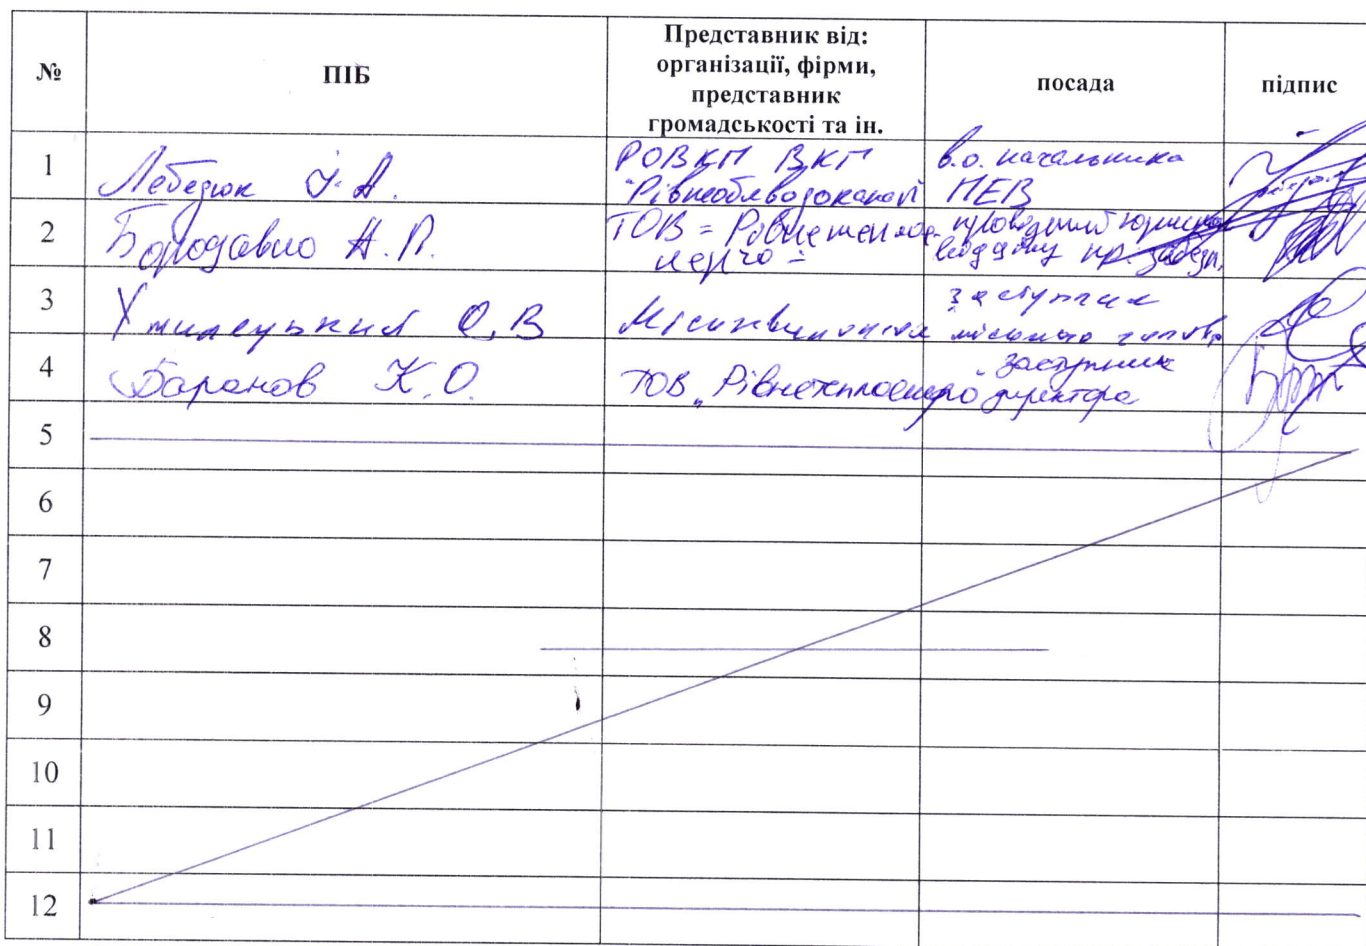 № ПІБ Представник від: організації, фірми, представник громадськості та ін. посада підпис
1 Лебедюк І.А. РОВКП ВКГ "Рівнеоблводоканал" в.о. начальника ПЕВ
2 Бородавко А.П. ТОВ = Рівнетеплоенерго = провідний юрисконсульт
3 Хмилецький О.В Міськвиконком заступник міського голови
4 Баранов К.О. ТОВ „Рівнетеплоенерго заступник директора
5
6
7
8
9
10
11
12